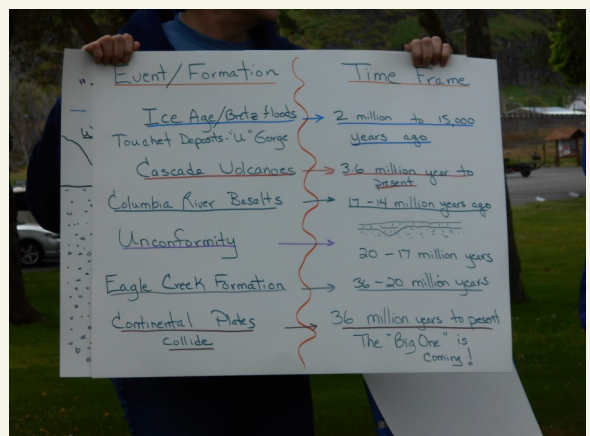 Event/Formation Time Frame
Ice Age/Bretz floods → 2 million to 15,000
years ago
Touchet Deposits-"U" Gorge
Cascade Volcanoes → 3.6 million year to
present
Columbia River Basalts → 17-14 million years ago
Unconformity → 20-17 million years
Eagle Creek Formation → 36-20 million years
Continental Plates → 36 million years to present
Collide
The "Big One" is
coming!